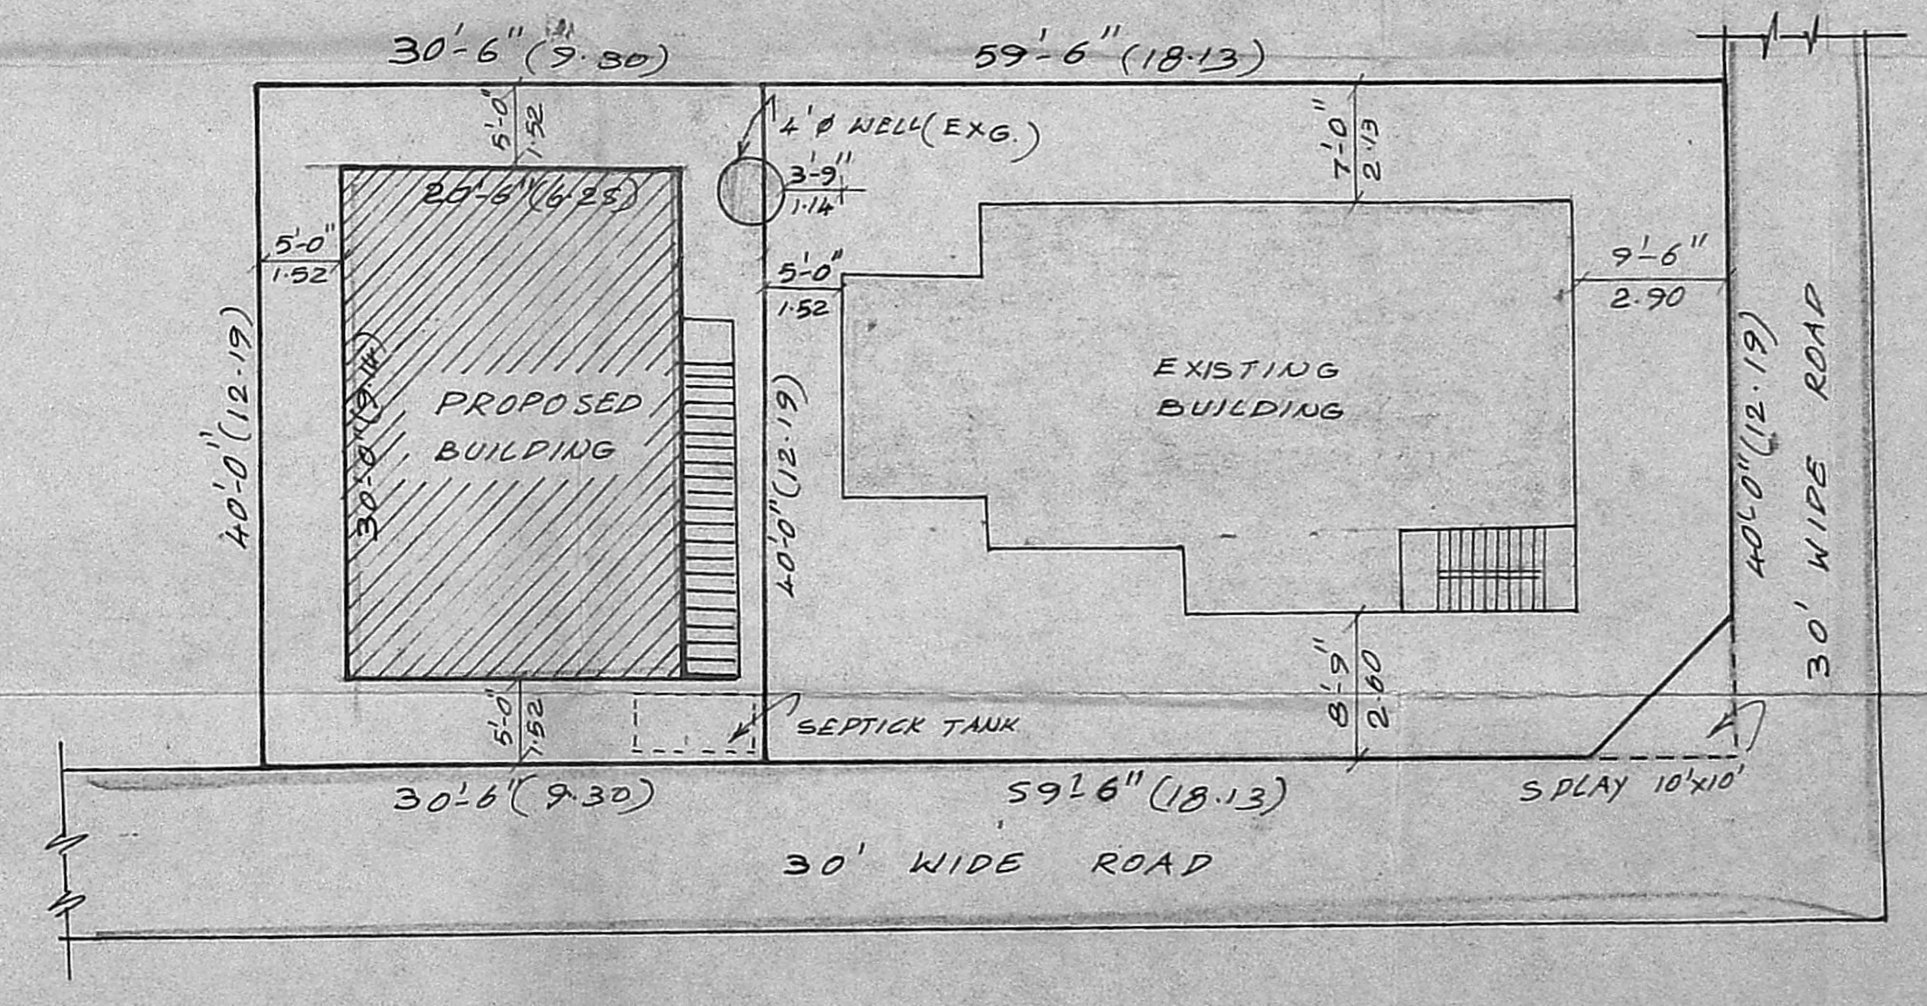 30'-6" (9.30)
59'-6" (18.13)
5'-0"
1.52
4'Ø WELL (EXG.)
7'-0"
2.13
3'-9"
1.14
20'-6" (6.25)
5'-0"
1.52
5'-0"
1.52
9'-6"
2.90
40'-0" (12.19)
30'-0" (9.14)
PROPOSED
BUILDING
40'-0" (12.19)
EXISTING
BUILDING
40'-0" (12.19)
30' WIDE ROAD
5'-0"
1.52
SEPTICK TANK
8'-9'
2.60
30'-6' (9.30)
59'-6" (18.13)
SPLAY 10'x10'
30' WIDE ROAD